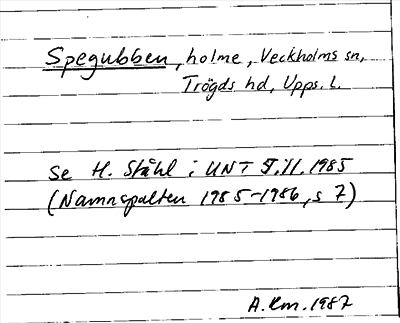 Spegubben, holme, Veckholms sn,
Trögds hd, Upps. l.
Se H. Ståhl i UNT 5.11.1985
(Namnspalten 1985-1986, s 7)
A. Rm. 1987